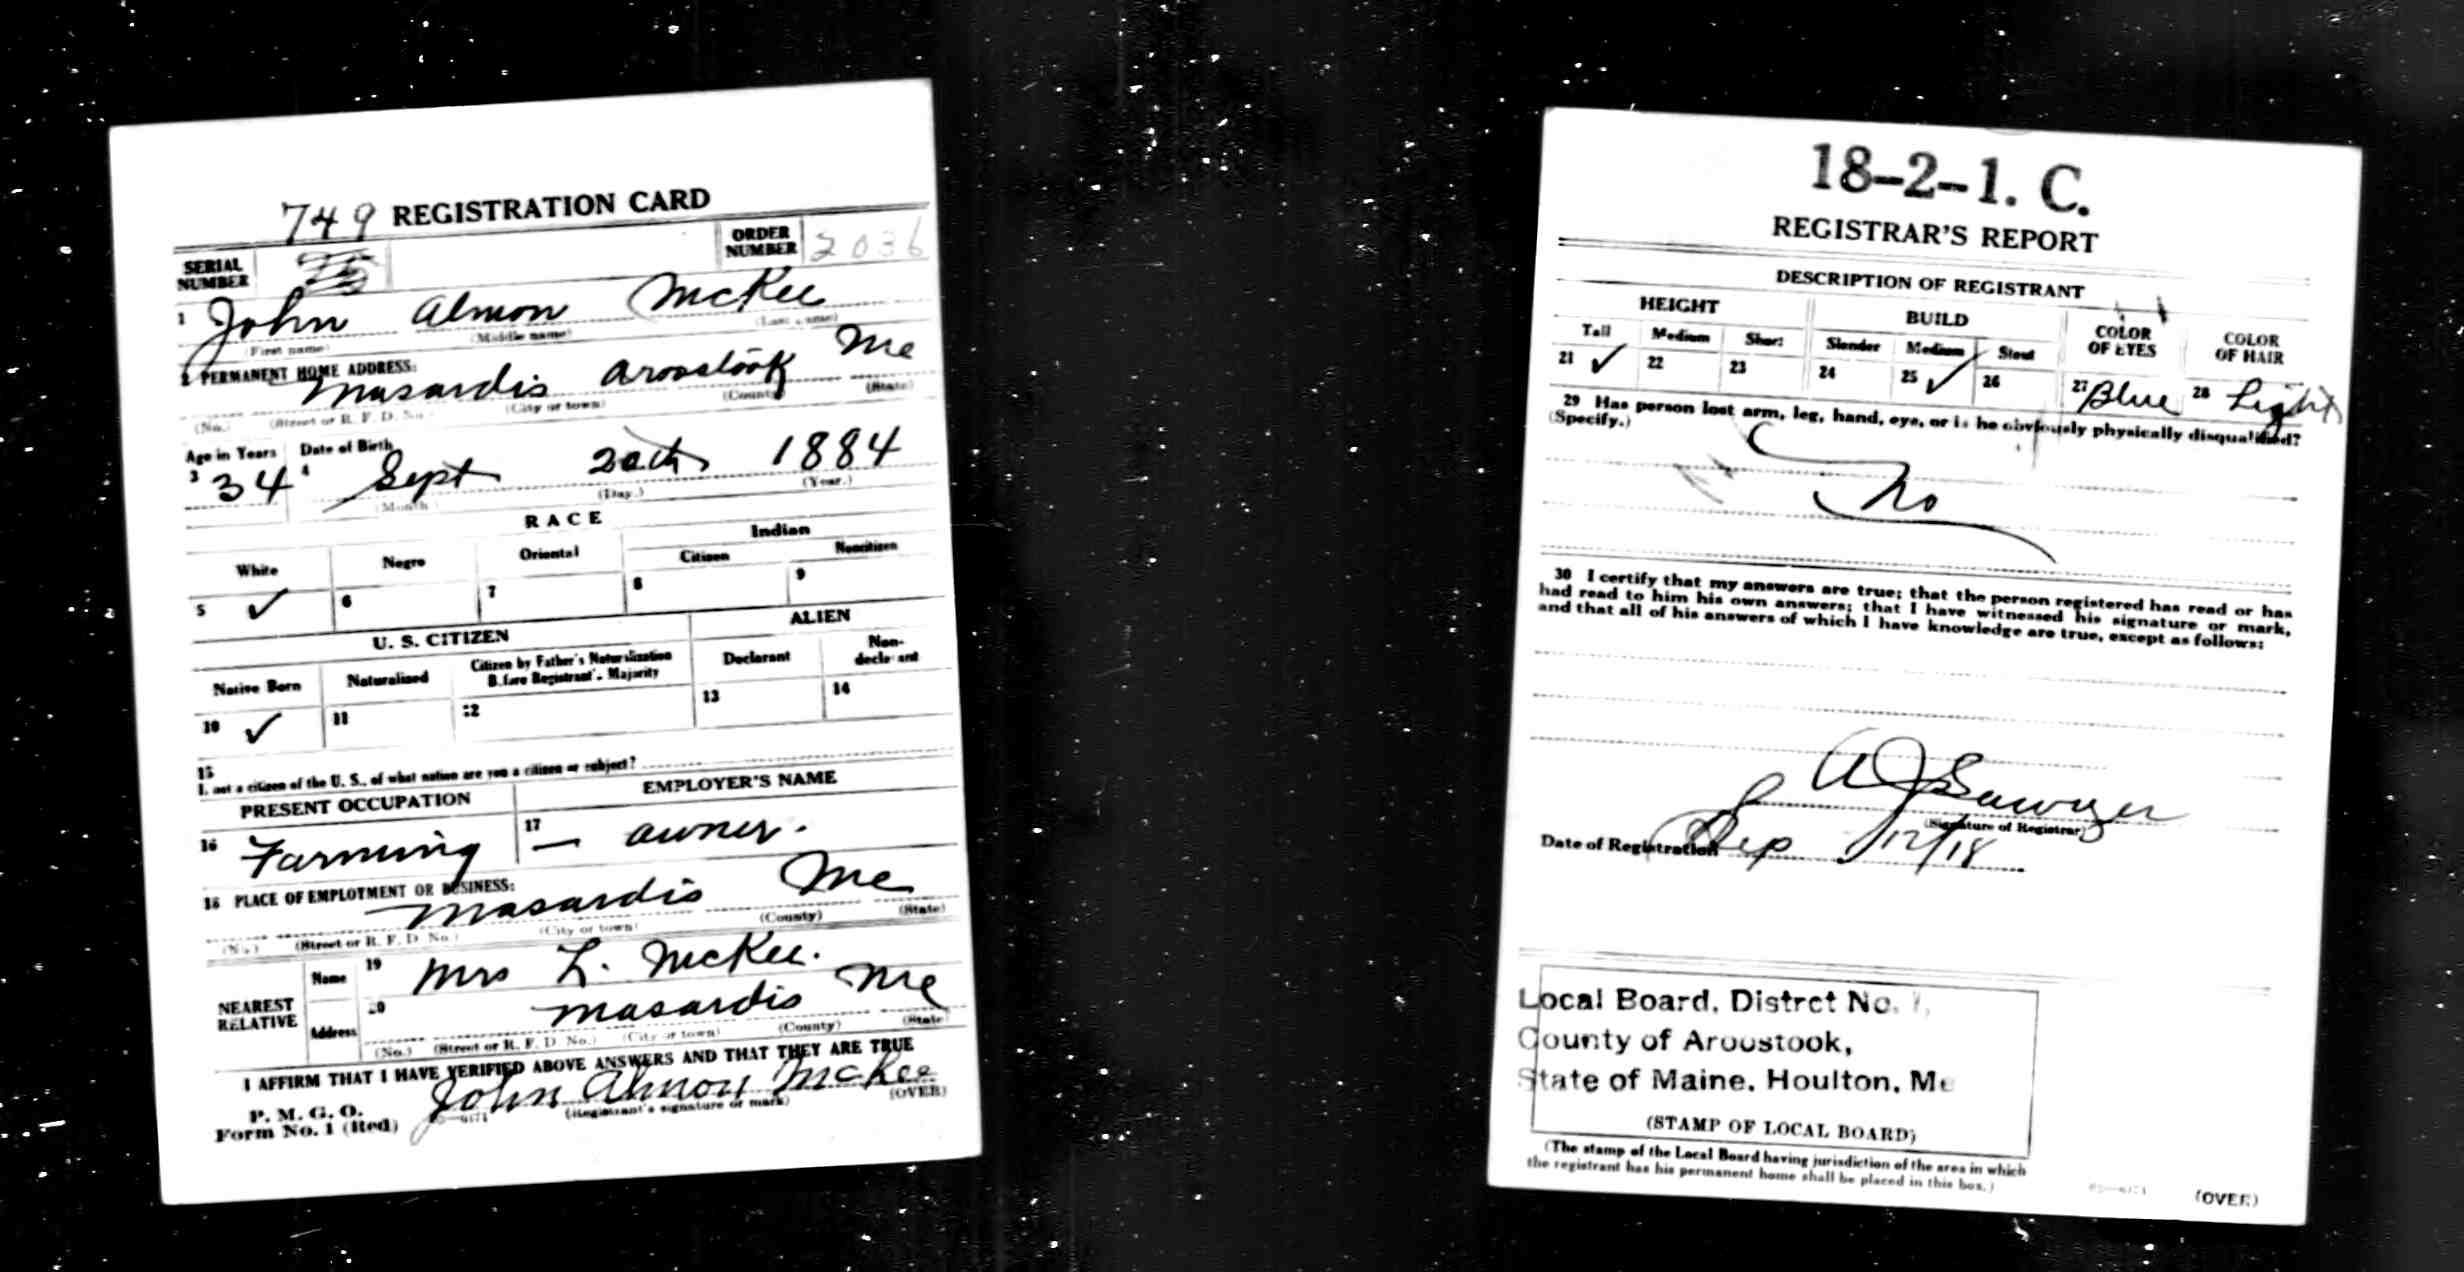 749 REGISTRATION CARD
SERIAL NUMBER
ORDER NUMBER 2036
1 John Almon McKee
(First name) (Middle name) (Last name)
2 PERMANENT HOME ADDRESS:
Masardis Aroostook Me
(No.) (Street or R. F. D. No.) (City or town) (County) (State)
Age in Years Date of Birth
3 34 4 Sept 20th 1884
(Month) (Day.) (Year.)
RACE
White Negro Oriental Indian
Citizen Noncitizen
5 ✓ 6 7 8 9
U. S. CITIZEN ALIEN
Native Born Naturalized Citizen by Father's Naturalization Before Registrant's Majority Declarant Non-declarant
10 ✓ 11 12 13 14
15
If not a citizen of the U. S., of what nation are you a citizen or subject?
PRESENT OCCUPATION EMPLOYER'S NAME
16 Farming 17 — owner.
18 PLACE OF EMPLOYMENT OR BUSINESS:
Masardis Me
(No.) (Street or R. F. D. No.) (City or town) (County) (State)
NEAREST RELATIVE
Name 19 Mrs L. McKee.
Address 20 Masardis Me
(No.) (Street or R. F. D. No.) (City or town) (County) (State)
I AFFIRM THAT I HAVE VERIFIED ABOVE ANSWERS AND THAT THEY ARE TRUE
P. M. G. O.
Form No. 1 (Red)
John Almon McKee
(Registrant's signature or mark) (OVER)
18-2-1. C.
REGISTRAR'S REPORT
DESCRIPTION OF REGISTRANT
HEIGHT BUILD COLOR OF EYES COLOR OF HAIR
Tall Medium Short Slender Medium Stout
21 ✓ 22 23 24 25 ✓ 26 27 Blue 28 Light
29 Has person lost arm, leg, hand, eye, or is he obviously physically disqualified?
(Specify.)
No
30 I certify that my answers are true; that the person registered has read or has
had read to him his own answers; that I have witnessed his signature or mark,
and that all of his answers of which I have knowledge are true, except as follows:
A J Sawyer
(Signature of Registrar)
Date of Registration Sep 12/18
Local Board, Distrct No. 1,
County of Aroostook,
State of Maine, Houlton, Me
(STAMP OF LOCAL BOARD)
(The stamp of the Local Board having jurisdiction of the area in which
the registrant has his permanent home shall be placed in this box.)
(OVER)